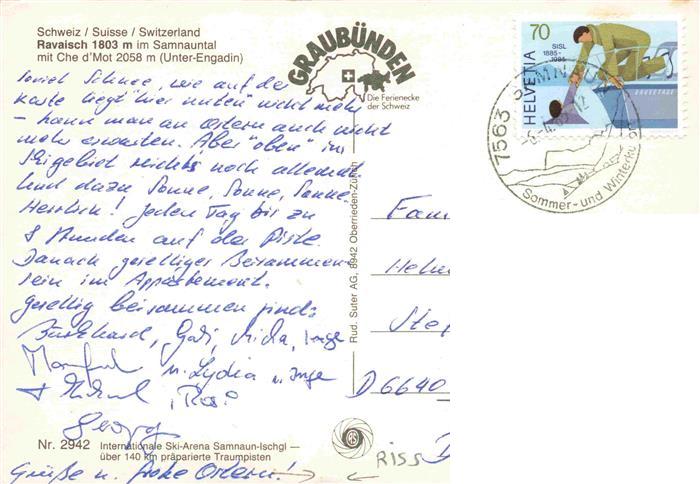 Schweiz / Suisse / Switzerland
Ravaisch 1803 m im Samnauntal
mit Che d'Mot 2058 m (Unter-Engadin)
GRAUBÜNDEN
Die Ferienecke
der Schweiz
70
SISL
1885-
1985
HELVETIA
SAUVETAGE
7563 SAMN
Sommer- und Winterku
soviel Schnee, wie auf der
Karte liegt "hier unten" nicht mehr
- kann man an Ostern auch nicht
mehr erwarten. Aber "oben" im
Skigebiet reichts noch allemal
Und dazu Sonne, Sonne, Sonne.
Herrlich! Jeden Tag bis zu
8 Stunden auf der Piste.
Danach geselliges Beisammen-
sein im Appartement.
Gesellig beisammen sind:
Burkhard, Gabi, Inge
Manfred u. Lydia u. Inge
+ Rosi
Georg
Grüße u. Frohe Ostern!
Rud. Suter AG, 8942 Oberrieden-Zürich
Fam
Helm
Ste
D 6640
RISS
Nr. 2942 Internationale Ski-Arena Samnaun-Ischgl —
über 140 km präparierte Traumpisten